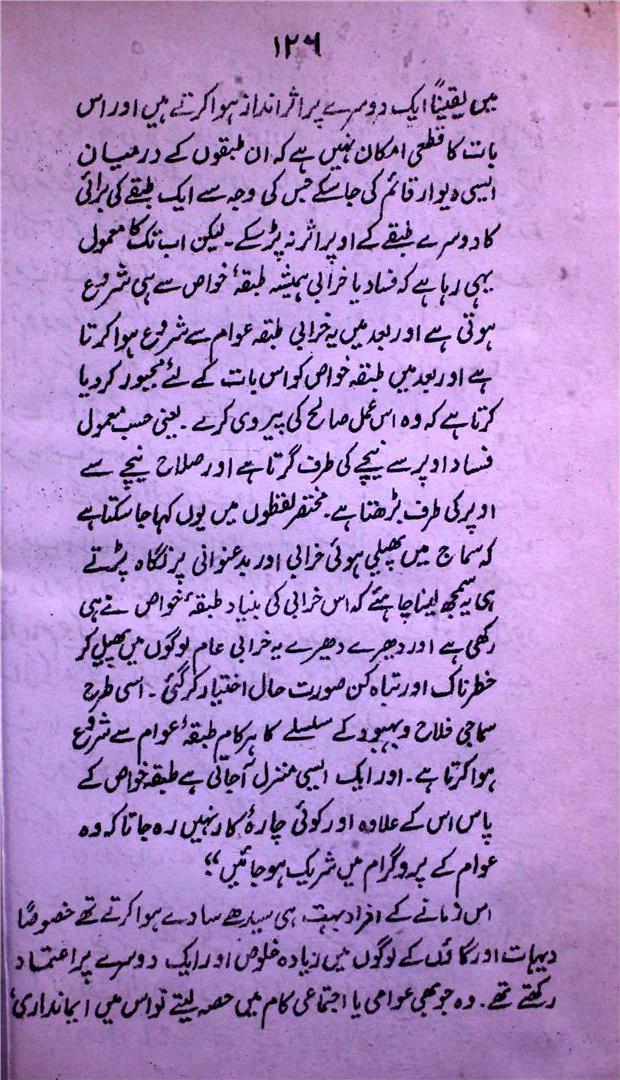 ۱۲۶
میں یقیناً ایک دوسرے پر اثر انداز ہوا کرتے ہیں اور اس
بات کا قطعی امکان نہیں ہے کہ ان طبقوں کے درمیان
ایسی دیوار قائم کی جا سکے جس کی وجہ سے ایک طبقے کی برائی
کا دوسرے طبقے کے اوپر اثر نہ پڑ سکے۔ لیکن اب تک کا معمول
یہی رہا ہے کہ فساد یا خرابی ہمیشہ طبقۂ خواص سے ہی شروع
ہوتی ہے اور بعد میں یہ خرابی طبقہ عوام سے شروع ہوا کرتا
ہے اور بعد میں طبقہ خواص کو اس بات کے لئے مجبور کر دیا
کرتا ہے کہ وہ اس عمل صالح کی پیروی کرے۔ یعنی حسب معمول
فساد اوپر سے نیچے کی طرف گرتا ہے اور صلاح نیچے سے
اوپر کی طرف بڑھتا ہے۔ مختصر لفظوں میں یوں کہا جا سکتا ہے
کہ سماج میں پھیلی ہوئی خرابی اور بدعنوانی پر نگاہ پڑتے
ہی یہ سمجھ لینا چاہئے کہ اس خرابی کی بنیاد طبقۂ خواص نے ہی
رکھی ہے اور دھیرے دھیرے یہ خرابی عام لوگوں میں پھیل کر
خطرناک اور تباہ کن صورت حال اختیار کر گئی۔ اسی طرح
سماجی فلاح و بہبود کے سلسلے کا ہر کام طبقۂ عوام سے شروع
ہوا کرتا ہے۔ اور ایک ایسی منزل آجاتی ہے طبقہ خواص کے
پاس اس کے علاوہ اور کوئی چارۂ کار نہیں رہ جاتا کہ وہ
عوام کے پروگرام میں شریک ہو جائیں“
اس زمانے کے افراد بہت ہی سیدھے سادے ہوا کرتے تھے خصوصاً
دیہات اور گاؤں کے لوگوں میں زیادہ خلوص اور ایک دوسرے پر اعتماد
رکھتے تھے۔ وہ جو بھی عوامی یا اجتماعی کام میں حصہ لیتے تو اس میں ایمانداری،